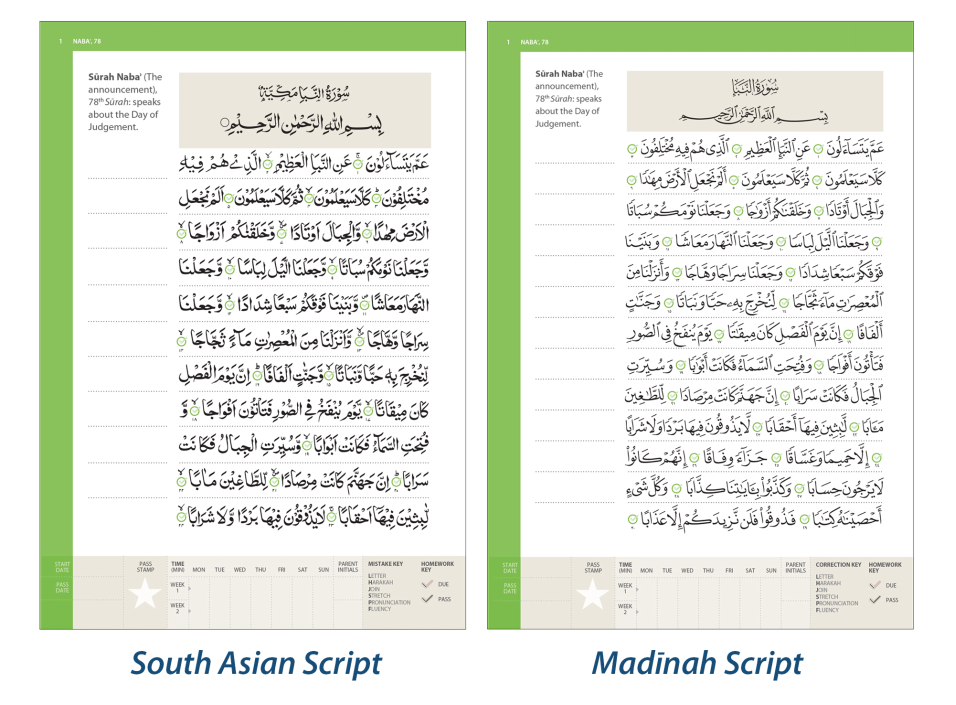 1 NABA', 78
Sūrah Naba' (The
announcement),
78th Sūrah: speaks
about the Day of
Judgement.
سُوْرَةُ النَّبَاِ مَكِّيَّةٌ
بِسْمِ اللهِ الرَّحْمٰنِ الرَّحِيْمِ
عَمَّ يَتَسَآءَلُوْنَ عَنِ النَّبَاِ الْعَظِيْمِ الَّذِىْ هُمْ فِيْهِ
مُخْتَلِفُوْنَ كَلَّا سَيَعْلَمُوْنَ ثُمَّ كَلَّا سَيَعْلَمُوْنَ اَلَمْ نَجْعَلِ
الْاَرْضَ مِهٰدًا وَّالْجِبَالَ اَوْتَادًا وَّخَلَقْنٰكُمْ اَزْوَاجًا
وَّجَعَلْنَا نَوْمَكُمْ سُبَاتًا وَّجَعَلْنَا الَّيْلَ لِبَاسًا وَّجَعَلْنَا
النَّهَارَ مَعَاشًا وَّبَنَيْنَا فَوْقَكُمْ سَبْعًا شِدَادًا وَّجَعَلْنَا
سِرَاجًا وَّهَّاجًا وَّاَنْزَلْنَا مِنَ الْمُعْصِرٰتِ مَآءً ثَجَّاجًا
لِّنُخْرِجَ بِهٖ حَبًّا وَّنَبَاتًا وَّجَنّٰتٍ اَلْفَافًا اِنَّ يَوْمَ الْفَصْلِ
كَانَ مِيْقَاتًا يَّوْمَ يُنْفَخُ فِى الصُّوْرِ فَتَاْتُوْنَ اَفْوَاجًا وَّ
فُتِحَتِ السَّمَآءُ فَكَانَتْ اَبْوَابًا وَّسُيِّرَتِ الْجِبَالُ فَكَانَتْ
سَرَابًا اِنَّ جَهَنَّمَ كَانَتْ مِرْصَادًا لِّلطَّاغِيْنَ مَاٰبًا
لّٰبِثِيْنَ فِيْهَآ اَحْقَابًا لَا يَذُوْقُوْنَ فِيْهَا بَرْدًا وَّلَا شَرَابًا
START DATE
PASS DATE
PASS STAMP
TIME (MIN) MON TUE WED THU FRI SAT SUN
WEEK 1
WEEK 2
PARENT INITIALS
MISTAKE KEY
LETTER
HARAKAH
JOIN
STRETCH
PRONUNCIATION
FLUENCY
HOMEWORK KEY
DUE
PASS
South Asian Script
1 NABA', 78
Sūrah Naba' (The
announcement),
78th Sūrah: speaks
about the Day of
Judgement.
سُورَةُ النَّبَإِ
بِسْمِ اللَّهِ الرَّحْمَٰنِ الرَّحِيمِ
عَمَّ يَتَسَآءَلُونَ عَنِ ٱلنَّبَإِ ٱلْعَظِيمِ ٱلَّذِى هُمْ فِيهِ مُخْتَلِفُونَ
كَلَّا سَيَعْلَمُونَ ثُمَّ كَلَّا سَيَعْلَمُونَ أَلَمْ نَجْعَلِ ٱلْأَرْضَ مِهَٰدًا
وَٱلْجِبَالَ أَوْتَادًا وَخَلَقْنَٰكُمْ أَزْوَٰجًا وَجَعَلْنَا نَوْمَكُمْ سُبَاتًا
وَجَعَلْنَا ٱلَّيْلَ لِبَاسًا وَجَعَلْنَا ٱلنَّهَارَ مَعَاشًا وَبَنَيْنَا
فَوْقَكُمْ سَبْعًا شِدَادًا وَجَعَلْنَا سِرَاجًا وَهَّاجًا وَأَنزَلْنَا مِنَ
ٱلْمُعْصِرَٰتِ مَآءً ثَجَّاجًا لِّنُخْرِجَ بِهِۦ حَبًّا وَنَبَاتًا وَجَنَّٰتٍ
أَلْفَافًا إِنَّ يَوْمَ ٱلْفَصْلِ كَانَ مِيقَٰتًا يَوْمَ يُنفَخُ فِى ٱلصُّورِ
فَتَأْتُونَ أَفْوَاجًا وَفُتِحَتِ ٱلسَّمَآءُ فَكَانَتْ أَبْوَٰبًا وَسُيِّرَتِ
ٱلْجِبَالُ فَكَانَتْ سَرَابًا إِنَّ جَهَنَّمَ كَانَتْ مِرْصَادًا لِّلطَّٰغِينَ
مَـَٔابًا لَّٰبِثِينَ فِيهَآ أَحْقَابًا لَّا يَذُوقُونَ فِيهَا بَرْدًا وَلَا شَرَابًا
إِلَّا حَمِيمًا وَغَسَّاقًا جَزَآءً وِفَاقًا إِنَّهُمْ كَانُوا۟
لَا يَرْجُونَ حِسَابًا وَكَذَّبُوا۟ بِـَٔايَٰتِنَا كِذَّابًا وَكُلَّ شَىْءٍ
أَحْصَيْنَٰهُ كِتَٰبًا فَذُوقُوا۟ فَلَن نَّزِيدَكُمْ إِلَّا عَذَابًا
START DATE
PASS DATE
PASS STAMP
TIME (MIN) MON TUE WED THU FRI SAT SUN
WEEK 1
WEEK 2
PARENT INITIALS
CORRECTION KEY
LETTER
HARAKAH
JOIN
STRETCH
PRONUNCIATION
FLUENCY
HOMEWORK KEY
DUE
PASS
Madīnah Script